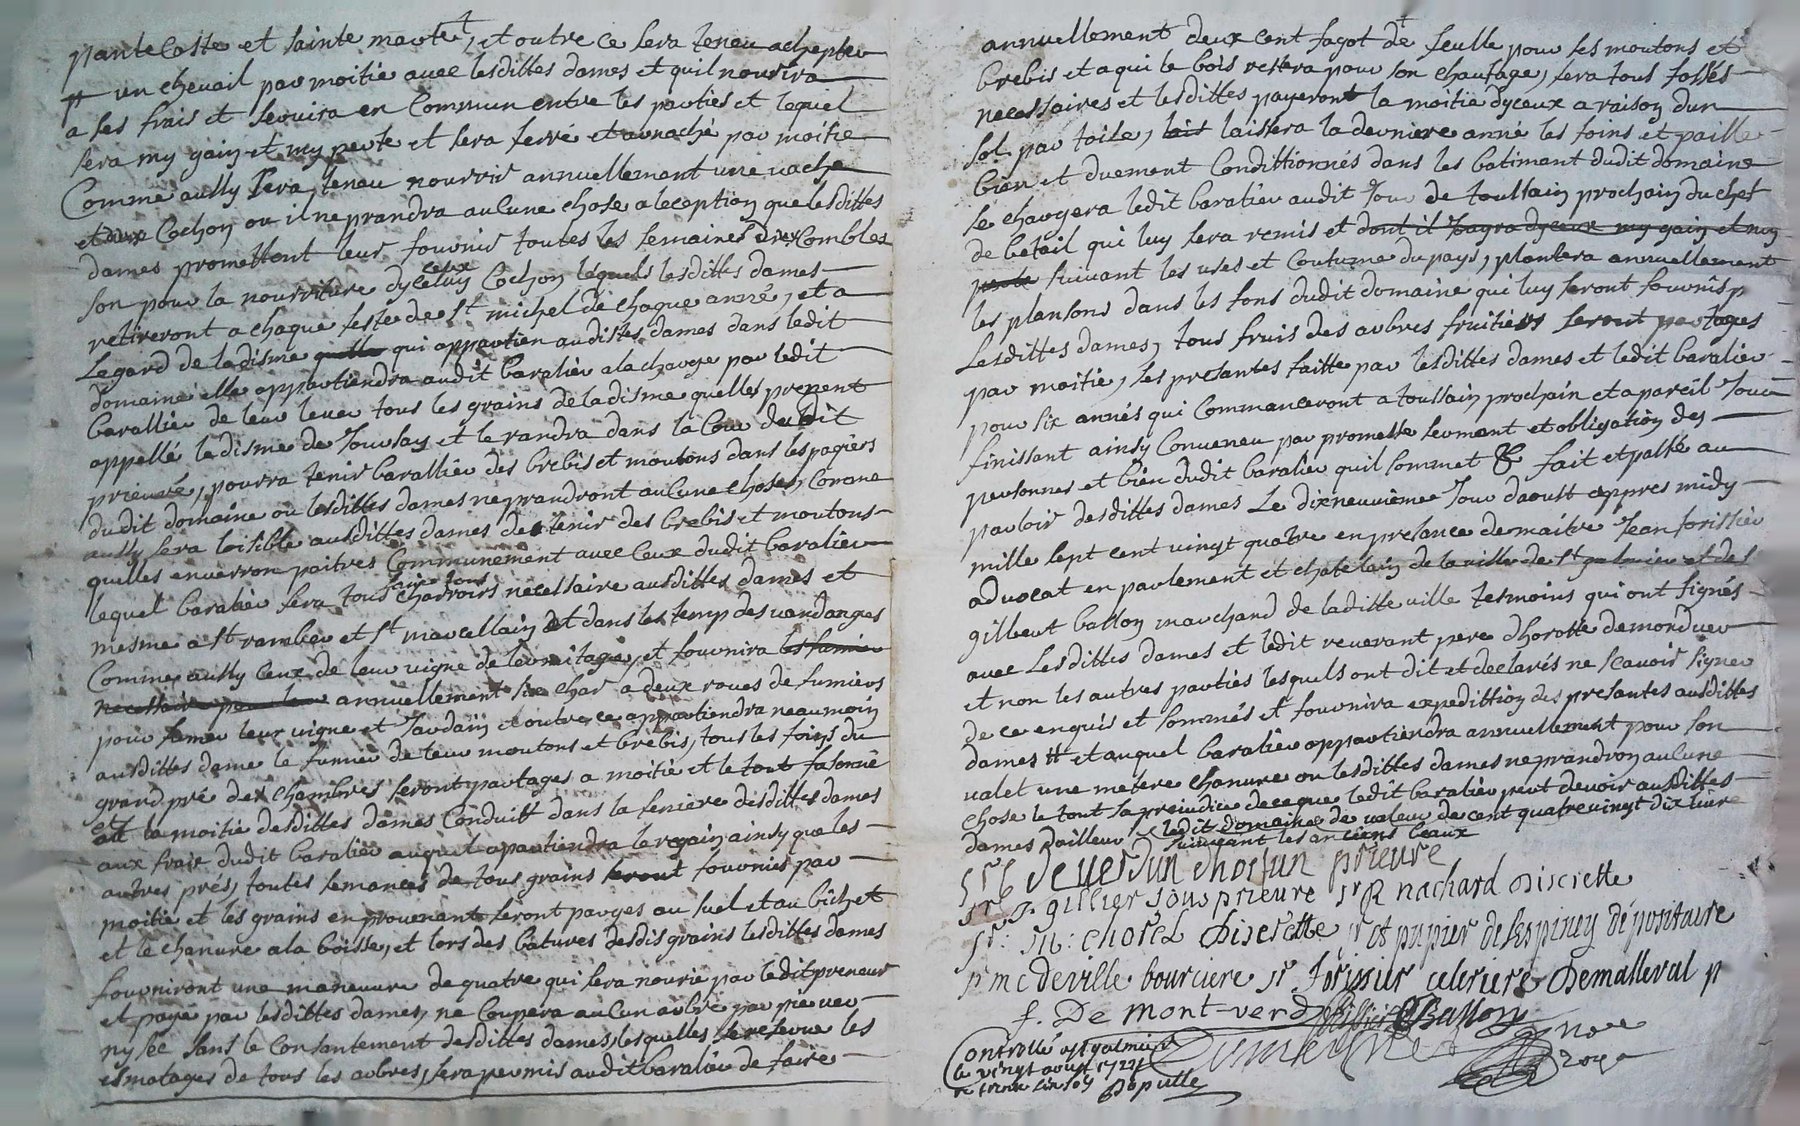 pantecoste et sainte marte, et outre ce sera teneu achepter
un chevail par moitié avec lesdittes dames et quil nourira
a ses frais et servira en commun entre les parties et lequel
sera my gain et my perte et sera ferré et arnaché par moitie
Comme aussy sera teneu nourrir annuellement une vache
et deux Cochon ou il ne prandra aucune chose a leception que lesdittes
dames promettent leur fournir toutes les semaines deux Combles
son pour la nourriture dyceux Cochon lequels lesdittes dames
retireront a chaque feste de st michel de chaque anné, et a
Legard de la disme qui appartien ausdittes dames dans ledit
domaine elle appartiendra audit baralier a la charge par ledit
barallier de leur lever tous les grains de la disme quelles prenent
appellé la disme de Joursay et le randra dans la Cour dudit
prieuré, pourra tenir barallier des brebis et moutons dans les pagiers
dudit domaine ou lesdittes dames ne prandront aucune choses, Comme
aussy sera loisible ausdittes dames de tenir des brebis et moutons
quelles enverron paitres Communement avec Ceux dudit baralier
lequel baralier sera tous faire tous charroirs necessaire ausdittes dames et
mesme a st rambier et st marcellain et dans les temp des vandanges
Comme aussy Ceux de leur vigne de lermitage, et fournira les fumier
necessaire pour leur annuellement six char a deux roues de fumiers
pour fumer leur vigne et Jardain et outre ce appartiendra neaumoin
ausdittes dame le fumier de leur moutons et brebis, tous les foins du
grand pré des chambres seront partages a moitié et le tout fasonné
et la moitié desdittes dames Conduitt dans la feniere desdittes dames
aux frais dudit baralier auquel apartiendra le regain ainsy que les
autres prés, toutes semances de tous grains seront fournies par
moitie et les grains en provenant seront parges au suel et au bichet
et le chanure a la boisse, et lors des batures desdis grains lesdittes dames
fourniront une maneuvre de quatre qui sera nourie par ledit preneur
et payé par lesdittes dames, ne Coupera aucun arbre par pie ver
ny sec sans le Consantement desdittes dames, lesquelles se reserve les
esmotages de tous les arbres, sera permis audit baralier de faire
annuellement deux cent fagot de feulle pour ses moutons et
brebis et a qui le bois restera pour son chaufage, sera tous fossés
necessaires et lesdittes payeront la moitié dyceux a raison dun
sol par toise, laissera la derniere anné les foins et paille
bien et duement Condittionnés dans les batiment dudit domaine
se chargera ledit baralier audit Jour de toussain prochain du chef
de betail qui luy sera remis et dont il Jagra dyceux my gain et my
perte suivant les uses et Coutume du pays, plantera annuellement
les plansons dans les fons dudit domaine qui luy seront fournis p
Lesdittes dames, tous fruis des arbres fruitiers seront partages
par moitie, les presantes faitte par lesdittes dames et ledit baralier
pour six annés qui Commanceront a toussain prochain et a pareil Jour
finissant ainsy Conveneu par promesse serment et obligation des
personnes et bien dudit baralier quil sommet & fait et passé au
parloir desdittes dames Le dixneuvieme Jour daoust appres midy
mille sept cent vingt quatre en presance de maitre Jean forissier
advocat en parlement et chatelain de la ville de st galmier et des
gilbert basson marchand de laditte ville tesmoins qui ont signés
avec Lesdittes dames et ledit reverant pere dhorosse demordver
et non les autres parties lesquels ont dit et declarés ne scavoir signer
de ce enquis et sommés et fournira expedittion des presantes ausdittes
dames et auquel baralier appartiendra annuellement pour son
valet une mesure chanure ou lesdittes dames ne prandron aucune
chose le tout sa preiudice de ce que ledit baralier peut devoir ausdittes
dames dailleur ledit domaine de valeur de cent quatre vingt dix livre
suivant les anciens beaux
De verdun chossun prieure
gillier sousprieure sr R nachard Discrette
sr: m: chorel Discrette sr et pupier de lespiney dépositaire
sr mc deville bourciere sr forissier celeriere Demalleval p
f. De mont-verd forissier Basson
Controllé a st galmier
le vingt aoust 1724
Depulle
nore
roya